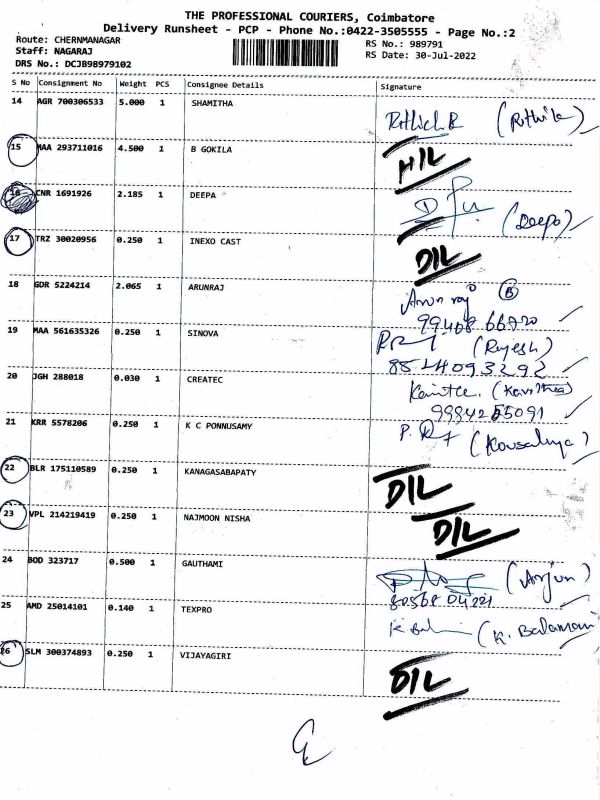 THE PROFESSIONAL COURIERS, Coimbatore
Delivery Runsheet - PCP - Phone No.:0422-3505555 - Page No.:2
Route: CHERNMANAGAR
RS No.: 989791
Staff: NAGARAJ
RS Date: 30-Jul-2022
DRS No.: DCJB98979102
S No Consignment No Weight PCS Consignee Details Signature
14 AGR 700306533 5.000 1 SHAMITHA
15 MAA 293711016 4.500 1 B GOKILA
16 CNR 1691926 2.185 1 DEEPA (Deepa)
17 TRZ 30020956 0.250 1 INEXO CAST D/L
18 GDR 5224214 2.065 1 ARUNRAJ Arun raj
19 MAA 561635326 0.250 1 SINOVA (Rajesh)
20 JGH 288018 0.030 1 CREATEC
21 KRR 5578206 0.250 1 K C PONNUSAMY (Kousalya)
22 BLR 175110589 0.250 1 KANAGASABAPATY D/L
23 VPL 214219419 0.250 1 NAJMOON NISHA D/L
24 BOD 323717 0.500 1 GAUTHAMI (Arjun)
25 AMD 25014101 0.140 1 TEXPRO (K. Balamani
26 SLM 300374893 0.250 1 VIJAYAGIRI D/L